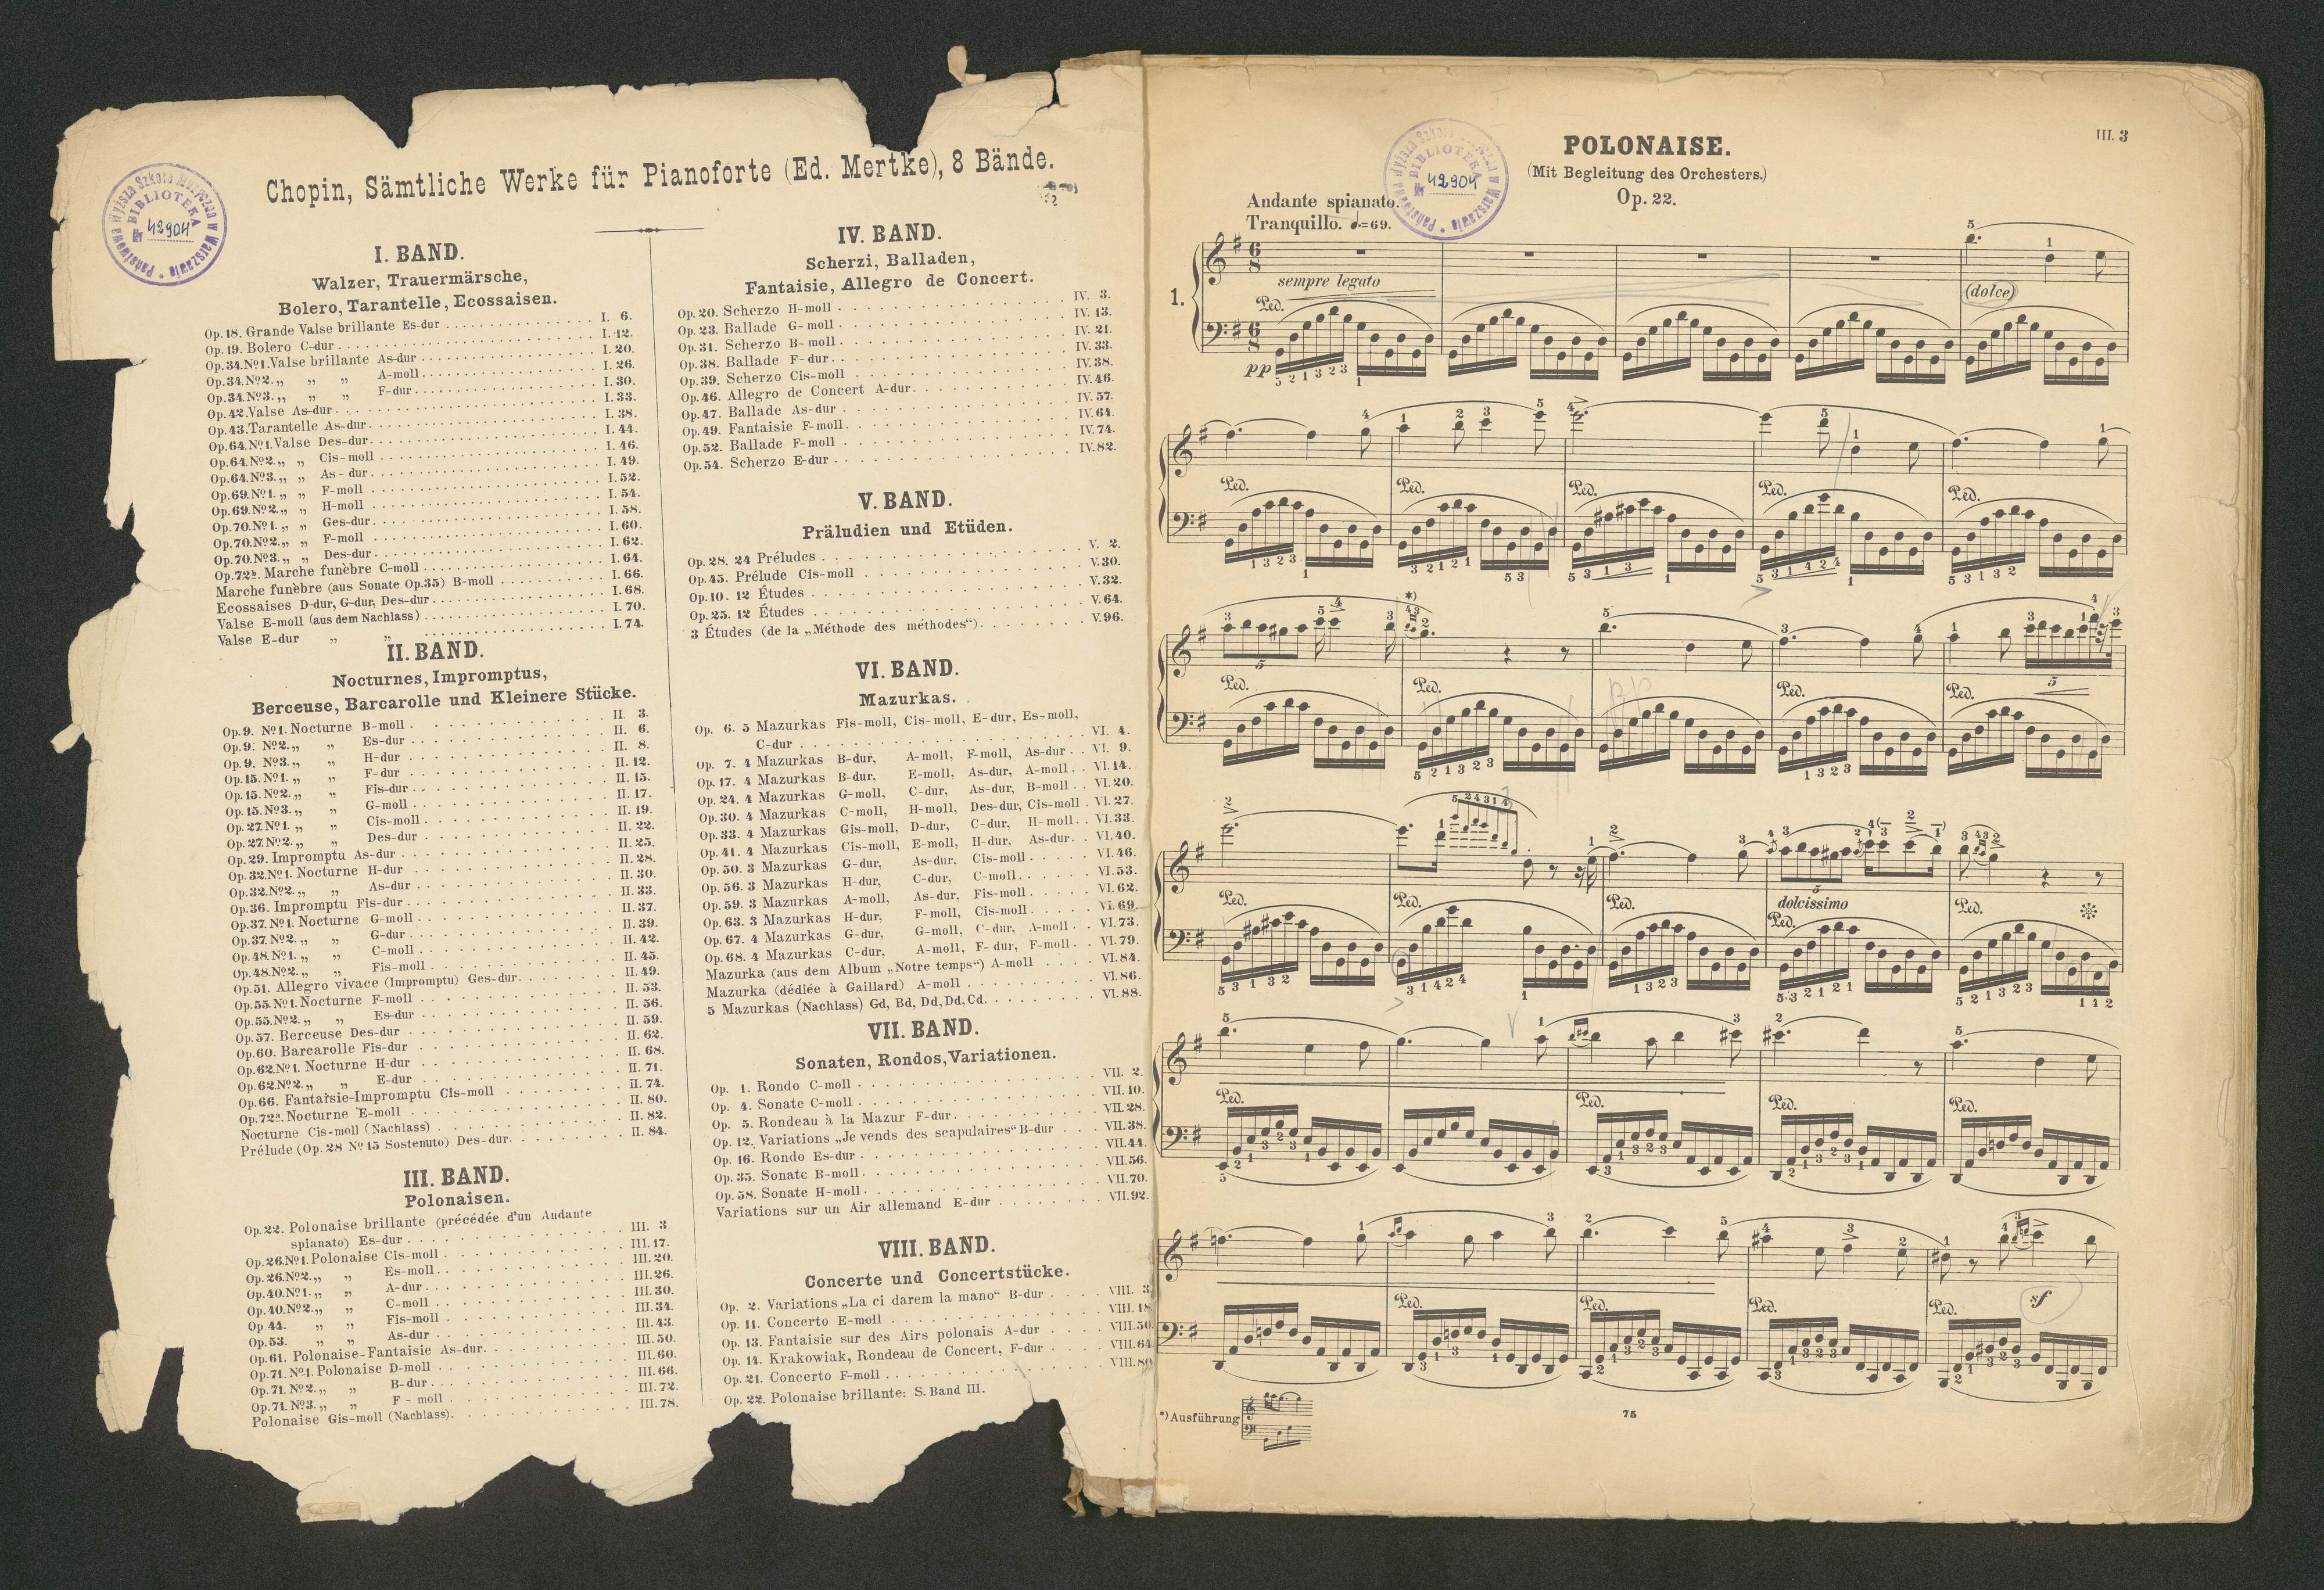 Chopin, Sämtliche Werke für Pianoforte (Ed. Mertke), 8 Bände.
Państwowa Wyższa Szkoła Muzyczna w Warszawie
BIBLIOTEKA
№ 42904
I. BAND.
Walzer, Trauermärsche,
Bolero, Tarantelle, Ecossaisen.
Op. 18. Grande Valse brillante Es-dur I. 6.
Op. 19. Bolero C-dur I. 12.
Op. 34. №1. Valse brillante As-dur I. 20.
Op. 34. №2. „ „ „ A-moll I. 26.
Op. 34. №3. „ „ „ F-dur I. 30.
Op. 42. Valse As-dur I. 33.
Op. 43. Tarantelle As-dur I. 38.
Op. 64. №1. Valse Des-dur I. 44.
Op. 64. №2. „ „ Cis-moll I. 46.
Op. 64. №3. „ „ As-dur I. 49.
Op. 69. №1. „ „ F-moll I. 52.
Op. 69. №2. „ „ H-moll I. 54.
Op. 70. №1. „ „ Ges-dur I. 58.
Op. 70. №2. „ „ F-moll I. 60.
Op. 70. №3. „ „ Des-dur I. 62.
Op. 72b. Marche funèbre C-moll I. 64.
Marche funèbre (aus Sonate Op. 35) B-moll I. 66.
Ecossaises D-dur, G-dur, Des-dur I. 68.
Valse E-moll (aus dem Nachlass) I. 70.
Valse E-dur „ „ I. 74.
II. BAND.
Nocturnes, Impromptus,
Berceuse, Barcarolle und Kleinere Stücke.
Op. 9. №1. Nocturne B-moll II. 3.
Op. 9. №2. „ „ Es-dur II. 6.
Op. 9. №3. „ „ H-dur II. 8.
Op. 15. №1. „ „ F-dur II. 12.
Op. 15. №2. „ „ Fis-dur II. 15.
Op. 15. №3. „ „ G-moll II. 17.
Op. 27. №1. „ „ Cis-moll II. 19.
Op. 27. №2. „ „ Des-dur II. 22.
Op. 29. Impromptu As-dur II. 25.
Op. 32. №1. Nocturne H-dur II. 28.
Op. 32. №2. „ „ As-dur II. 30.
Op. 36. Impromptu Fis-dur II. 33.
Op. 37. №1. Nocturne G-moll II. 37.
Op. 37. №2. „ „ G-dur II. 39.
Op. 48. №1. „ „ C-moll II. 42.
Op. 48. №2. „ „ Fis-moll II. 45.
Op. 51. Allegro vivace (Impromptu) Ges-dur II. 49.
Op. 55. №1. Nocturne F-moll II. 53.
Op. 55. №2. „ „ Es-dur II. 56.
Op. 57. Berceuse Des-dur II. 59.
Op. 60. Barcarolle Fis-dur II. 62.
Op. 62. №1. Nocturne H-dur II. 68.
Op. 62. №2. „ „ E-dur II. 71.
Op. 66. Fantaisie-Impromptu Cis-moll II. 74.
Op. 72a. Nocturne E-moll II. 80.
Nocturne Cis-moll (Nachlass) II. 82.
Prélude (Op. 28 №15 Sostenuto) Des-dur II. 84.
III. BAND.
Polonaisen.
Op. 22. Polonaise brillante (précédée d'un Andante
spianato) Es-dur III. 3
Op. 26. №1. Polonaise Cis-moll III. 17.
Op. 26. №2. „ „ Es-moll III. 20.
Op. 40. №1. „ „ A-dur III. 26.
Op. 40. №2. „ „ C-moll III. 30.
Op 44. „ „ Fis-moll III. 34.
Op. 53. „ „ As-dur III. 43.
Op. 61. Polonaise-Fantaisie As-dur III. 50.
Op. 71. №1. Polonaise D-moll III. 60.
Op. 71. №2. „ „ B-dur III. 66.
Op. 71. №3. „ „ F-moll III. 72.
Polonaise Gis-moll (Nachlass) III. 78.
IV. BAND.
Scherzi, Balladen,
Fantaisie, Allegro de Concert.
Op. 20. Scherzo H-moll IV. 3.
Op. 23. Ballade G-moll IV. 13.
Op. 31. Scherzo B-moll IV. 21.
Op. 38. Ballade F-dur IV. 33.
Op. 39. Scherzo Cis-moll IV. 38.
Op. 46. Allegro de Concert A-dur IV. 46.
Op. 47. Ballade As-dur IV. 57.
Op. 49. Fantaisie F-moll IV. 64.
Op. 52. Ballade F-moll IV. 74.
Op. 54. Scherzo E-dur IV. 82.
V. BAND.
Präludien und Etüden.
Op. 28. 24 Préludes V. 2.
Op. 45. Prélude Cis-moll V. 30.
Op. 10. 12 Études V. 32.
Op. 25. 12 Études V. 64.
3 Études (de la „Méthode des méthodes“) V. 96.
VI. BAND.
Mazurkas.
Op. 6. 5 Mazurkas Fis-moll, Cis-moll, E-dur, Es-moll,
C-dur VI. 4.
Op. 7. 4 Mazurkas B-dur, A-moll, F-moll, As-dur VI. 9.
Op. 17. 4 Mazurkas B-dur, E-moll, As-dur, A-moll VI. 14.
Op. 24. 4 Mazurkas G-moll, C-dur, As-dur, B-moll VI. 20.
Op. 30. 4 Mazurkas C-moll, H-moll, Des-dur, Cis-moll VI. 27.
Op. 33. 4 Mazurkas Gis-moll, D-dur, C-dur, H-moll VI. 33.
Op. 41. 4 Mazurkas Cis-moll, E-moll, H-dur, As-dur VI. 40.
Op. 50. 3 Mazurkas G-dur, As-dur, Cis-moll VI. 46.
Op. 56. 3 Mazurkas H-dur, C-dur, C-moll VI. 53.
Op. 59. 3 Mazurkas A-moll, As-dur, Fis-moll VI. 62.
Op. 63. 3 Mazurkas H-dur, F-moll, Cis-moll VI. 69.
Op. 67. 4 Mazurkas G-dur, G-moll, C-dur, A-moll VI. 73.
Op. 68. 4 Mazurkas C-dur, A-moll, F-dur, F-moll VI. 79.
Mazurka (aus dem Album „Notre temps“) A-moll VI. 84.
Mazurka (dédiée à Gaillard) A-moll VI. 86.
5 Mazurkas (Nachlass) Gd, Bd, Dd, Dd, Cd. VI. 88.
VII. BAND.
Sonaten, Rondos, Variationen.
Op. 1. Rondo C-moll VII. 2.
Op. 4. Sonate C-moll VII. 10.
Op. 5. Rondeau à la Mazur F-dur VII. 28.
Op. 12. Variations „Je vends des scapulaires“ B-dur VII. 38.
Op. 16. Rondo Es-dur VII. 44.
Op. 35. Sonate B-moll VII. 56.
Op. 58. Sonate H-moll VII. 70.
Variations sur un Air allemand E-dur VII. 92.
VIII. BAND.
Concerte und Concertstücke.
Op. 2. Variations „La ci darem la mano“ B-dur VIII. 3
Op. 11. Concerto E-moll VIII. 18
Op. 13. Fantaisie sur des Airs polonais A-dur VIII. 50
Op. 14. Krakowiak, Rondeau de Concert, F-dur VIII. 64
Op. 21. Concerto F-moll VIII. 80
Op. 22. Polonaise brillante: S. Band III.
III. 3
POLONAISE.
(Mit Begleitung des Orchesters.)
Op. 22.
Państwowa Wyższa Szkoła Muzyczna w Warszawie
BIBLIOTEKA
№ 42904
Andante spianato.
Tranquillo. ♩.=69.
1.
sempre legato
(dolce)
Ped.
pp
Ped. Ped. Ped. Ped. Ped.
*)
Ped. Ped. Ped. Ped.
Ped. Ped. Ped. dolcissimo Ped. Ped.
Ped. Ped. Ped. Ped.
Ped. Ped. Ped. Ped. sf
*) Ausführung
75